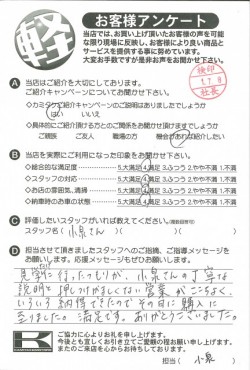 軽
お客様アンケート
当店では、お買い上げ頂いたお客様の声を可能
な限り現場に反映し、お客様により良い商品と
サービスを提供する事に努めています。
大変お手数ですが是非お声をお聞かせ下さい。
検印
社長
A 当店はご紹介を大切にしております。
ご紹介キャンペーンについてお聞かせ下さい。
ご紹介キャンペーンのご説明はありましたでしょうか
はい いいえ
・具体的にご紹介頂ける方とのご関係をお聞かせ頂けますでしょうか
ご親戚 ご友人 職場の方 機会があれば紹介したい
B 当店を実際にご利用になられた印象をお聞かせ下さい。
・総合的な満足度 5.大満足 4.満足 3.ふつう 2.やや不満 1.不満
・スタッフの対応 5.大満足 4.満足 3.ふつう 2.やや不満 1.不満
・お店の雰囲気、清掃 5.大満足 4.満足 3.ふつう 2.やや不満 1.不満
・納車時のお車の状態 5.大満足 4.満足 3.ふつう 2.やや不満 1.不満
C 評価したいスタッフがいれば教えてください。
スタッフ名( 小泉さん )
D 担当させて頂きましたスタッフへのご指摘、ご指導メッセージを
お願いします。応援メッセージもぜひお願いします。
見学に行ったつもりが、小泉さんの丁寧な
説明と押しつけがましくない営業がここちよく、
いろいろ納得できたのでその日に購入に
至りました。満足です。ありがとうございました。
ご協力に心よりお礼を申し上げます。
今後とも宜しくお引き立てご愛顧の程お願い申し上げます。
またのご来店を心からお待ちしております。
担当( 小泉 )